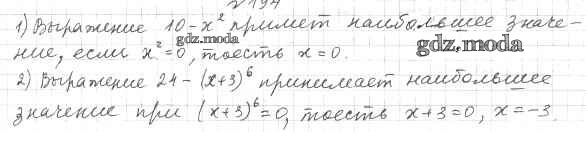 №194
1) Выражение 10 - x² примет наибольшее значе-
ние, если x² = 0, тоесть x = 0.
gdz.moda
gdz.moda
2) Выражение 24 - (x+3)⁶ принимает наибольшее
значение при (x+3)⁶ = 0, тоесть x+3=0, x=-3.